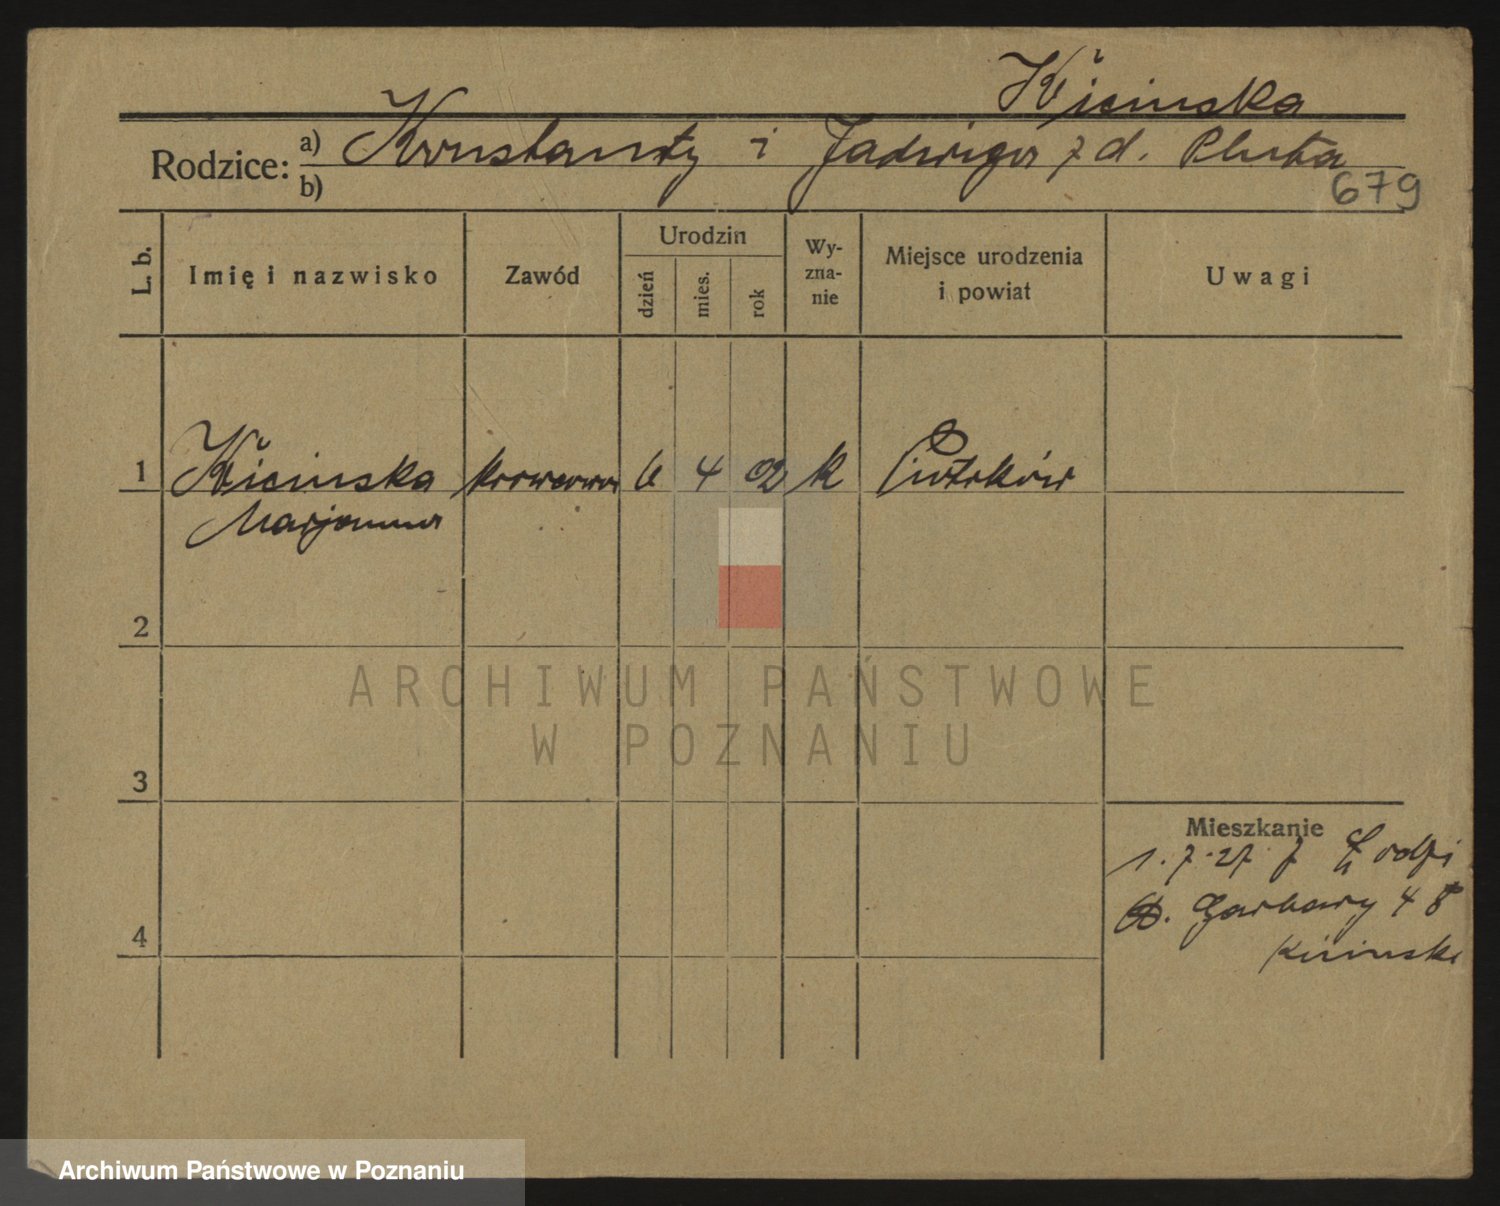 Kicinska
Rodzice: a) Konstanty i Jadwiga z d. Pluta
b)
679
L. b. Imię i nazwisko Zawód Urodzin dzień mies. rok Wy-zna-nie Miejsce urodzenia i powiat Uwagi
1 Kicinska krawcowa 6 4 02 k Piotrków
Marjanna
2
ARCHIWUM PAŃSTWOWE
W POZNANIU
3
Mieszkanie
1. 7. 27 z Łodzi
Garbary 48
4
Kicinska
Archiwum Państwowe w Poznaniu